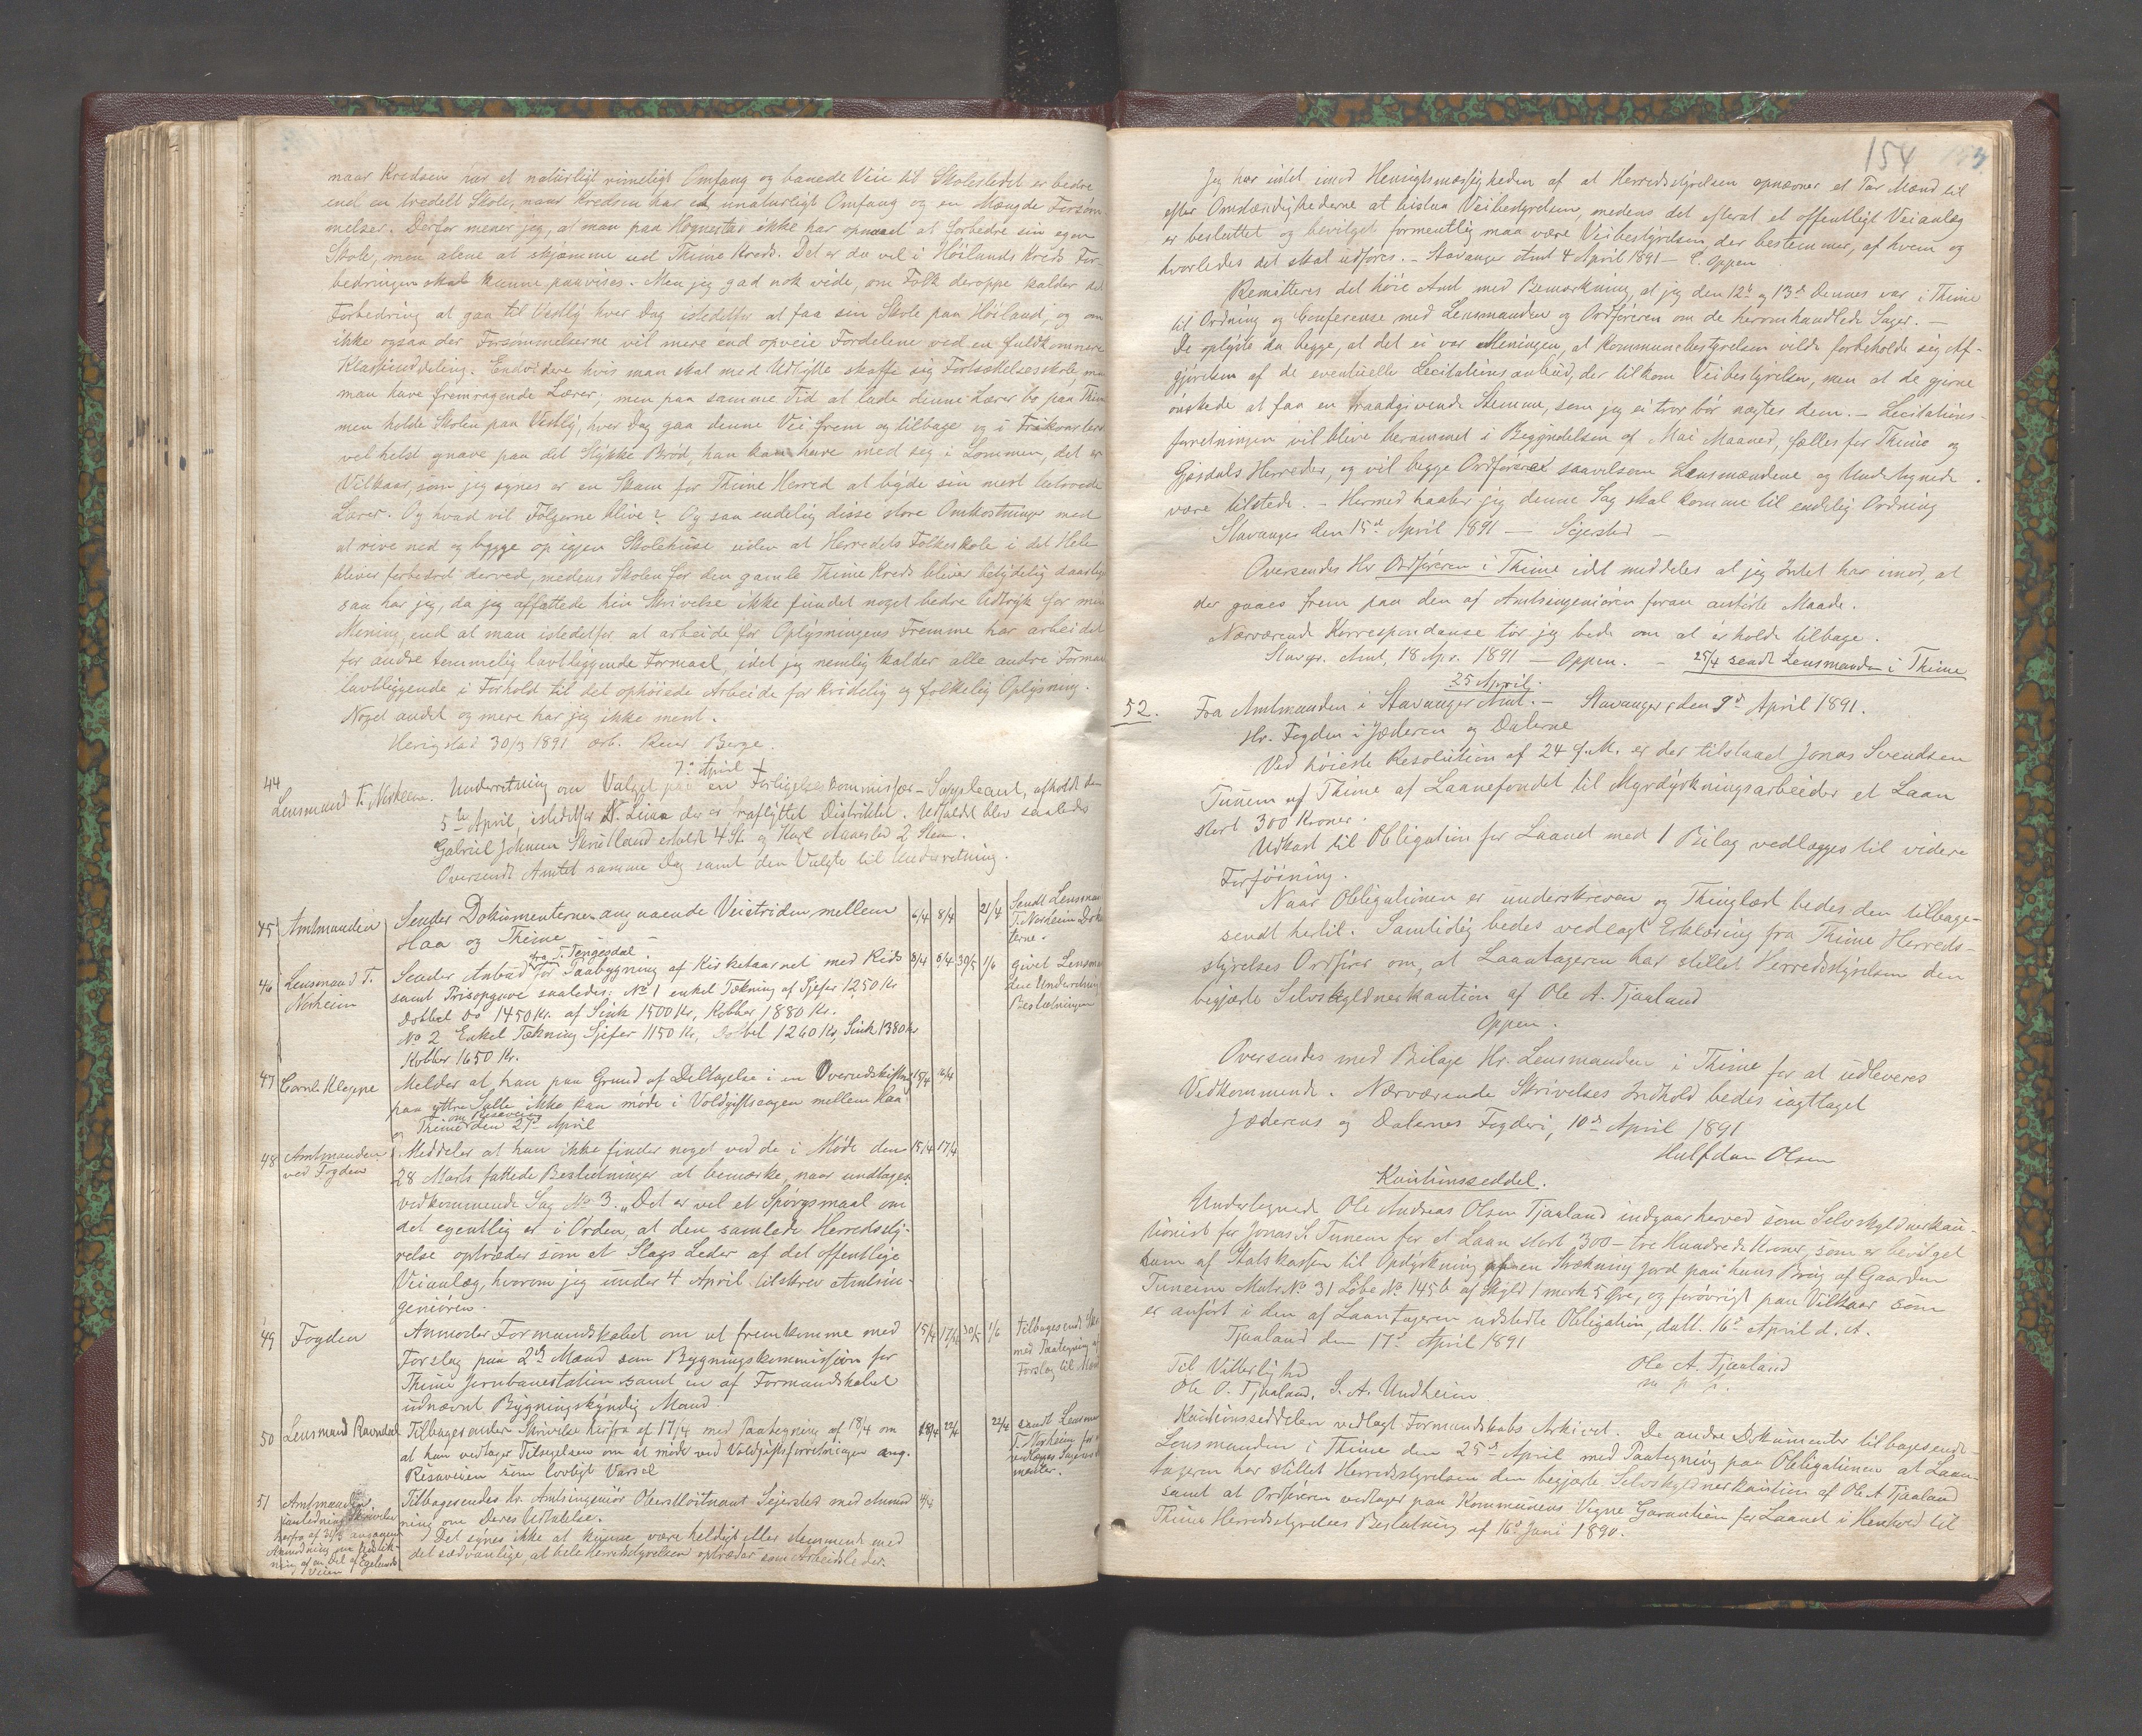 naar Kredsen har et naturligt rimeligt Omfang og banede Veie til Skolestedet er bedre
end en tredelt Skole, naar Kredsen har et unaturligt Omfang og en Mængde Forsøm-
melser. Derfor mener jeg, at man paa Hognestad ikke har opnaaet at forbedre sin egen
Skole, men alene at skjæmme ud Thime Kreds. Det er da vel i Höilands Kreds For-
bedringen skal kunne paavises. Men jeg gad nok vide, om Folk deroppe kalder det
Forbedring at gaa til Vestly hver Dag istedetfor at faa sin Skole paa Höiland, og om
ikke ogsaa der Forsømmelserne vil mere end opveie Fordelene ved en fuldkomnere
Klasseinddeling. Endvidere hvis man skal med Udbytte skaffe sig Fortsættelsesskole maa
man have fremragende Lærer, men paa samme Tid at lade denne Lærer bo paa Thime
men holde Skolen paa Vestly, hver Dag gaa denne Vei frem og tilbage og i Frikvarteret
vel helst gnave paa det Stykke Bröd, han kan have med sig i Lommen, det er
Vilkaar, som jeg synes er en Skam for Thime Herred at byde sin mest betroede
Lærer. Og hvad vil Fölgerne blive? Og saa endelig disse store Omkostninger med
at rive ned og bygge op igjen Skolehuse, uden at Herredets Folkeskole i det Hele
bliver forbedret derved, medens Skolen for den gamle Thime Kreds bliver betydelig daarligere
saa har jeg, da jeg affattede hin Skrivelse ikke fundet noget bedre Udtryk for min
Mening, end at man istedetfor at arbeide for Oplysningens Fremme har arbeidet
for andre temmelig lavtliggende Formaal, idet jeg nemlig kalder alle andre Formaal
lavtliggende i Forhold til det ophöiede Arbeide for kristelig og folkelig Oplysning.
Noget andet og mere har jeg ikke ment.
Herigstad 30/3 1891 ærb. Berge.
7de April
44 Lensmand T. Norheim. Underretning om Valget paa en Forligelseskommissær-Suppleant, afholdt den
5te April, istedetfor N. Leiaa der er fraflyttet Distriktet. Udfaldet blev saaledes
Gabriel Johnsen Skrudland erholdt 4 St. og Karl Aanestad 2 Stem.
Oversendt Amtet samme Dag samt den Valgte til Underretning.
45 Amtmanden Sender Dokumenterne angaaende Veistriden mellem 6/4 8/4 21/4 Sendt Lensman
Haa og Thime T. Norheim Doku
terne.
fra T. Tengesdal
46 Lensmand T. Sender Anbud for Paabygning af Kirketaarnet med Rids 8/4 8/4 30/5 1/6 givet Lensman
Norheim samt Prisopgave saaledes: No 1 enkel Tækning af Sjefer 1250 Kr den Underretning
Dobbel Do 1450 Kr. af Sink 1500 Kr, Kobber 1880 Kr. Beslutningen
No 2 Enkel Tækning Sjefer 1150 Kr, Dobbel 1260 Kr, Sink 1380 Kr
Kobber 1650 Kr.
47 Cornl. Kleppe Melder at han paa Grund af Deltagelse i en Overudskiftning 15/4 16/4
paa yttre Salte ikke kan möde i Voldgiftssagen mellem Haa
om Risaveien
og Thime den 27de April
48 Amtmanden Meddeler at han ikke finder noget ved de i Möde den 15/4 17/4
ved Fogden 28 Marts fattede Beslutninger at bemærke, naar undtages
vedkommende Sag No 3. „Det er vel et Spörgsmaal om
det egentlig er i Orden, at den samlede Herredssty-
relse optræder som et Slags Leder af det offentlige
Veianlæg, hvorom jeg under 4 April tilskrev Amtsin-
geniören.
49 Fogden Anmoder Formandskabet om at fremkomme med 15/4 17/4 30/5 1/6 Tilbagesendt
Forslag paa 2de Mænd som Bygningskommission for med Paategning af
Thime Jernbanestation samt en af Formandskabet Forslag til Mænd
udnævnt Bygningskyndig Mand.
50 Lensmand Ravndal Tilbagesender Skrivelse herfra af 17/4 med Paategning af 18/4 om 18/4 22/4 22/4 sendt Lensman
at han vedtager Tilsigelsen om at möde ved Voldgiftsforretningen ang. T. Norheim for at
Risaveien som lovligt Varsel vedlægges Sagens
51 Amtmanden Tilbagesendes Hr. Amtsingeniör Oberstlöitnant Sejersted med Anmod 4/4
i anledning Skrivelse ning om Deres Udtalelse.
herfra af 31/3 angaaende Det synes ikke at kunne være heldigt eller stemmende med
Anmodning om det sædvanlige, at hele Herredsstyrelsen optræder som Arbeidsleder.
ning af en Del af Egelands
Veien
154
Jeg har intet imod Hensigtsmæssigheden af at Herredsstyrelsen opnævner et Par Mænd til
efter Omstændighederne at bistaa Veibestyrelsen, medens det efterat et offentligt Veianlæg
er besluttet og bevilget formentlig maa være Veibestyrelsen der bestemmer, af hvem og
hvorledes det skal udføres. – Stavanger Amt 4 April 1891 – C. Oppen
Remitteres det höie Amt med Bemærkning, at jeg den 12te og 13de Dennes var i Thime
til Ordning og Conferense med Lensmanden og Ordföreren om de heromhandlede Sager. –
De oplyste da begge, at det ei var Meningen, at Kommunebestyrelsen vilde forbeholde sig Af-
gjörelsen af de eventuelle Licitationsanbud, der tilkom Veibestyrelsen, men at de gjerne
önskede at faa en raadgivende Stemme, som jeg ei tror bör nægtes dem. – Licitations-
forretningen vil blive berammet i Begyndelsen af Mai Maaned, fælles for Thime og
Gjesdals Herreder, og vil begge Ordförere saavelsom Lensmændene og Undertegnede
være tilstede. – Hermed haaber jeg denne Sag skal komme til endelig Ordning
Stavanger den 15de April 1891 – Sejersted –
Oversendes Hr Ordföreren i Thime idet meddeles at jeg Intet har imod, at
der gaaes frem paa den af Amtsingeniören foran anförte Maade.
Nærværende Korrespondanse tör jeg bede om at erholde tilbage.
Stavgr. Amt, 18 Apr. 1891 – Oppen. – 25/4 sendt Lensmanden i Thime
25 April.
52. Fra Amtmanden i Stavanger Amt. – Stavanger, den 9de April 1891.
Hr. Fogden i Jæderen og Dalerne
Ved höieste Resolution af 24 f. M. er der tilstaaet Jonas Svendsen
Tunem af Thime af Laanefondet til Myrdyrkningsarbeider et Laan
stort 300 Kroner.
Udkast til Obligation for Laanet med 1 Bilag vedlægges til videre
Forföining.
Naar Obligationen er underskreven og Thinglæst bedes den tilbage-
sendt hertil. Samtidig bedes vedlagt Erklæring fra Thime Herreds-
styrelses Ordförer om, at Laantageren har stillet Herredsstyrelsen den
begjærte Selvskyldnerkaution af Ole A. Tjaaland
Oppen.
Oversendes med Bilage Hr. Lensmanden i Thime for at udleveres
Vedkommende. Nærværende Skrivelses Indhold bedes iagttaget
Jæderens og Dalernes Fogderi, 10de April 1891
Halfdan Olsen
Kautionsseddel.
Undertegnede Ole Andreas Olsen Tjaaland indgaar herved som Selvskyldnerkau-
tionist for Jonas S. Tunem for et Laan stort 300 – tre Hundrede Kroner, som er bevilget
ham af Statskassen til Opdyrkning af en Strækning Jord paa hans Brug af Gaarden
Tuneim Matr. No 31 Löbe No 145b af Skyld 1 mark 5 Öre, og forövrigt paa Vilkaar som
er anfört i den af Laantageren udstedte Obligation, datt. 16de April d. A.
Tjaaland den 17de April 1891
Til Vitterlighed Ole A. Tjaaland
Ole O. Tjaaland. S. A. Undheim m. p. p.
Kautionsseddelen vedlagt Formandskabs Arkivet. De andre Dokumenter tilbagesendt
Lensmanden i Thime den 25de April med Paategning paa Obligationen at Laan-
tageren har stillet Herredsstyrelsen den begjærte Selvskyldnerkaution af Ole A Tjaaland
samt at Ordföreren vedtager paa Kommunens Vegne Garantien for Laanet i Henhold til
Thime Herredsstyrelses Beslutning af 16de Juni 1890.